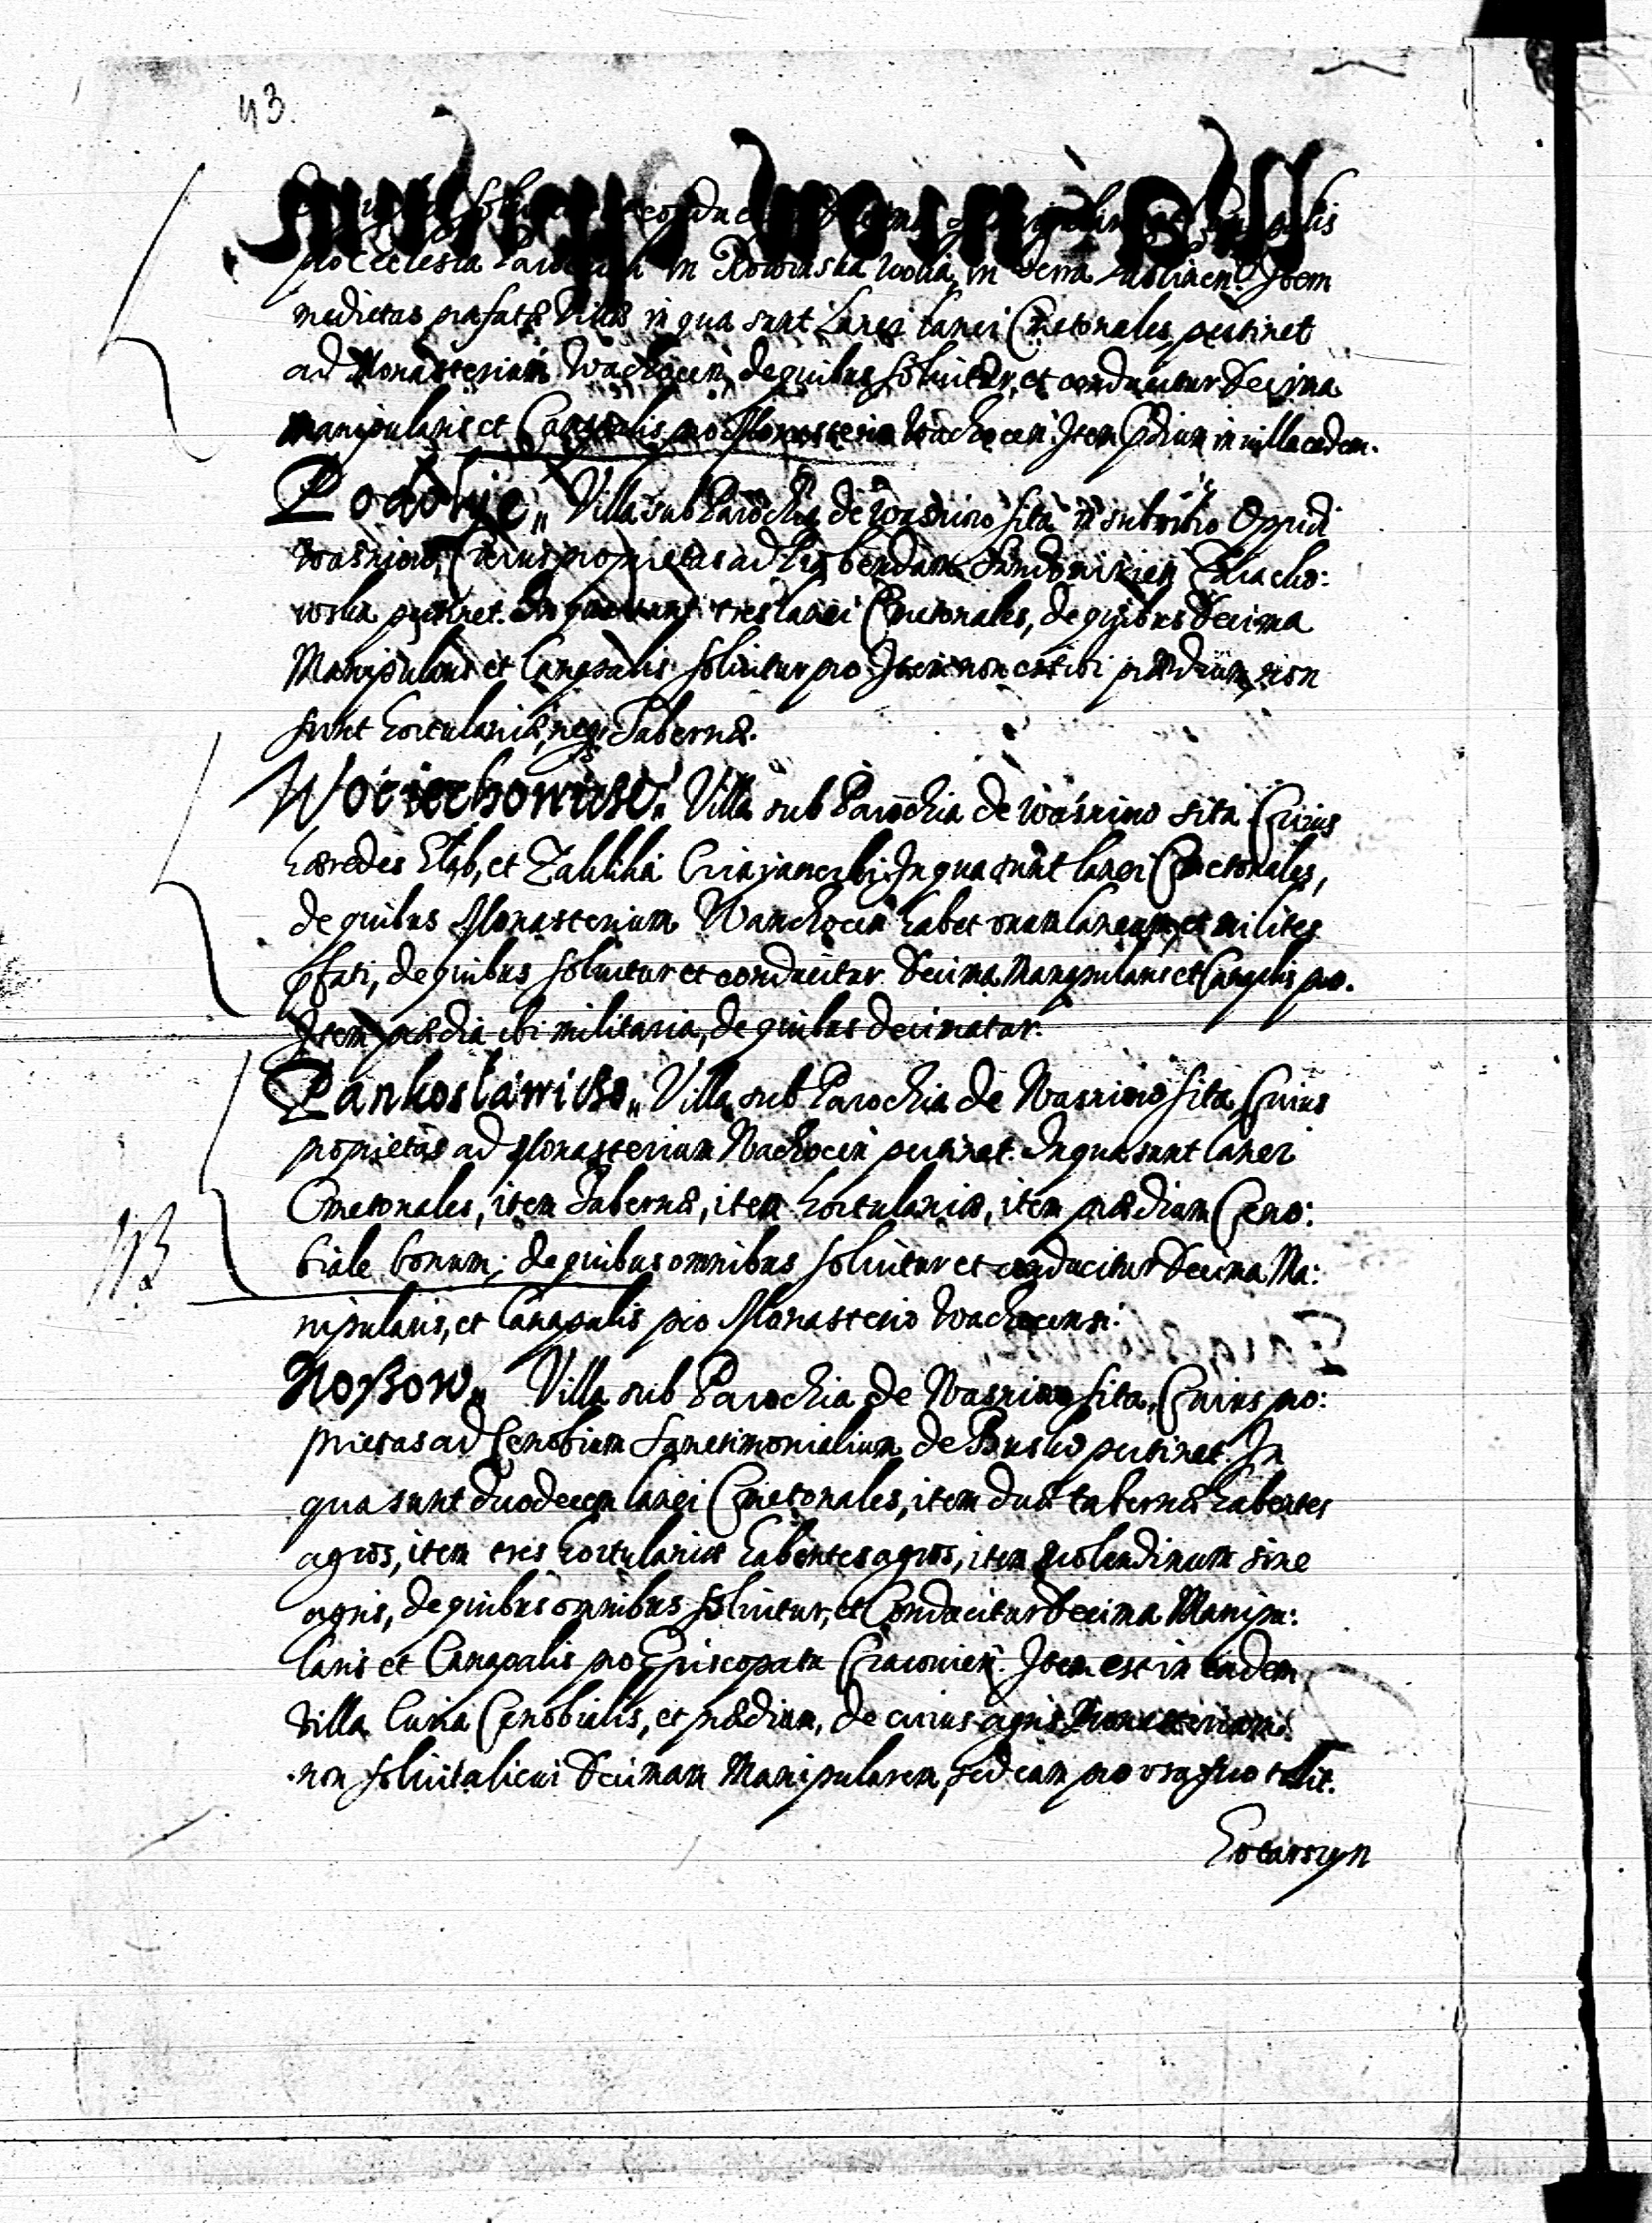 43.
pro Ecclesia in wolia in terra Item
medietas præfatæ Villæ in qua sunt Lanei lanei Cmetonales, pertinet
ad Monasterium Wachocen̄ de quibus solvitur, et conducitur Decima
manipularis et Canapalis pro Monasterio Wachocen: Item prædium in villa eadem.
Podolye„ Villa sub Parochia de Wasniow sita in suburbio Oppidi
Wasniow, Cuius proprietas ad Præbendam Sandomirien̄
pertinet. In qua sunt tres lanei Cmetonales, de quibus Decima
Manipularis et Canapalis solvitur pro Item non est ibi prædium, non
sunt hortulaniæ, neq; Tabernæ.
Woiciechowicze„ Villa sub Parochia de Wasniow sita Cuius
hæredes et In qua sunt lanei Cmetonales,
de quibus Monasterium Wanchocen̄ habet unum laneum, et milites
pfati, de quibus solvitur et conducitur Decima Manipularis et Canapalis pro.
Item prædia ibi militaria, de quibus decimatur.
Pankoslawicze„ Villa sub Parochia de Wasniow sita Cuius
proprietas ad Monasterium Wachocen̄ pertinet. In qua sunt lanei
Cmetonales, item Tabernæ, item hortulaniæ, item prædium Ceno:
biale bonum; de quibus omnibus solvitur et conducitur Decima Ma:
nipularis, et Canapalis pro Monasterio Wachocensi.
Noszow„ Villa sub Parochia de Wasniow sita, Cuius pro:
prietas ad Cenobium Sanctimonialium de Busko pertinet. In
qua sunt duodecem lanei Cmetonales, item duæ tabernæ habentes
agros, item tres hortulaniæ habentes agros, item molendinum sine
agris, de quibus omnibus solvitur, et Conducitur Decima Manipu:
laris et Canapalis pro Episcopatu Cracovien̄. Item est in eadem
villa Curia Cenobialis, et prædium, de cuius agris Monasterium
non solvit alicui Decimam Manipularem, sed eam pro usu suo tollit.